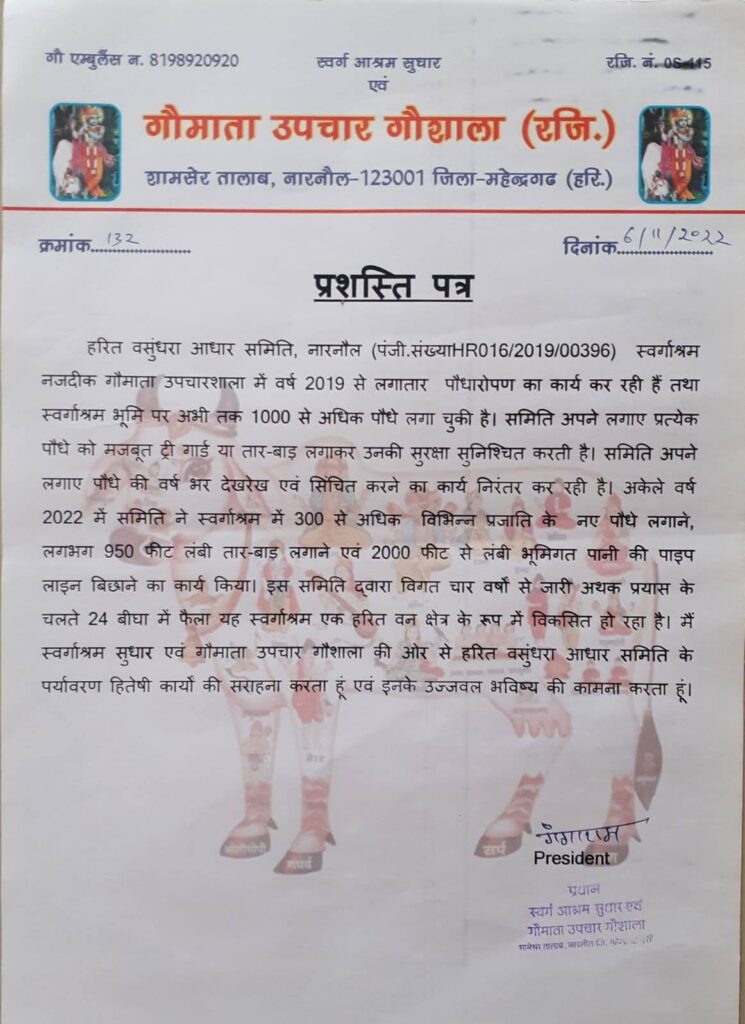 गौ एम्बुलैंस न. 8198920920 स्वर्ग आश्रम सुधार रजि. नं. 0S-115
एवं
गौमाता उपचार गौशाला (रजि.)
शामसेर तालाब, नारनौल-123001 जिला-महेन्द्रगढ (हरि.)
क्रमांक 132 दिनांक 6/11/2022
प्रशस्ति पत्र
हरित वसुंधरा आधार समिति, नारनौल (पंजी.संख्याHR016/2019/00396) स्वर्गाश्रम
नजदीक गौमाता उपचारशाला में वर्ष 2019 से लगातार पौधारोपण का कार्य कर रही हैं तथा
स्वर्गाश्रम भूमि पर अभी तक 1000 से अधिक पौधे लगा चुकी है। समिति अपने लगाए प्रत्येक
पौधे को मजबूत ट्री गार्ड या तार-बाड़ लगाकर उनकी सुरक्षा सुनिश्चित करती है। समिति अपने
लगाए पौधे की वर्ष भर देखरेख एवं सिंचित करने का कार्य निरंतर कर रही है। अकेले वर्ष
2022 में समिति ने स्वर्गाश्रम में 300 से अधिक विभिन्न प्रजाति के नए पौधे लगाने,
लगभग 950 फीट लंबी तार-बाड़ लगाने एवं 2000 फीट से लंबी भूमिगत पानी की पाइप
लाइन बिछाने का कार्य किया। इस समिति द्वारा विगत चार वर्षो से जारी अथक प्रयास के
चलते 24 बीघा में फैला यह स्वर्गाश्रम एक हरित वन क्षेत्र के रूप में विकसित हो रहा है। मैं
स्वर्गाश्रम सुधार एवं गौमाता उपचार गौशाला की ओर से हरित वसुंधरा आधार समिति के
पर्यावरण हितेषी कार्यो की सराहना करता हूं एवं इनके उज्जवल भविष्य की कामना करता हूं।
गंगाराम
President
प्रधान
स्वर्ग आश्रम सुधार एवं
गौमाता उपचार गौशाला
तालाब, नारनौल जि.
गंधर्व
सर्प